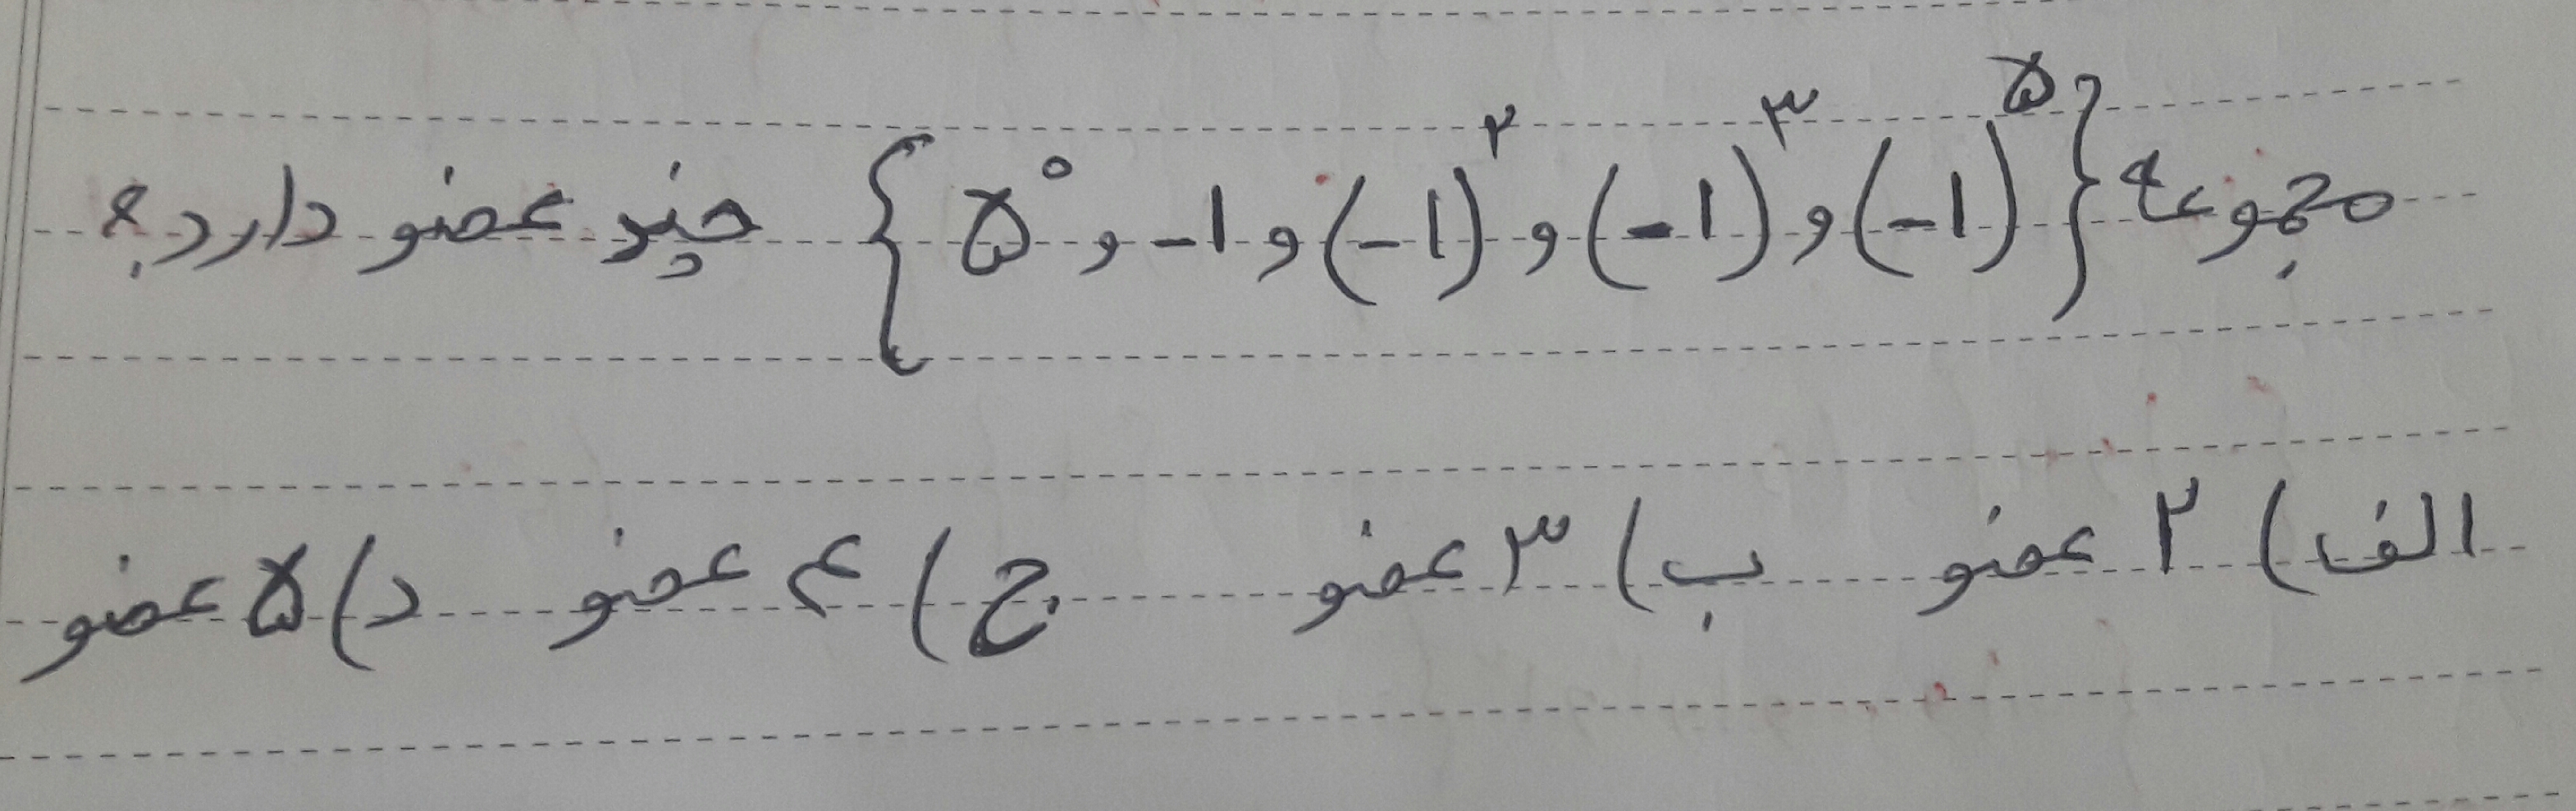 مجموعه {۵° و ۱- و (۱-)^۲ و (۱-)^۳ و (۱-)^۵} چند عضو دارد؟
الف) ۲ عضو ب) ۳ عضو ج) ۴ عضو د) ۵ عضو